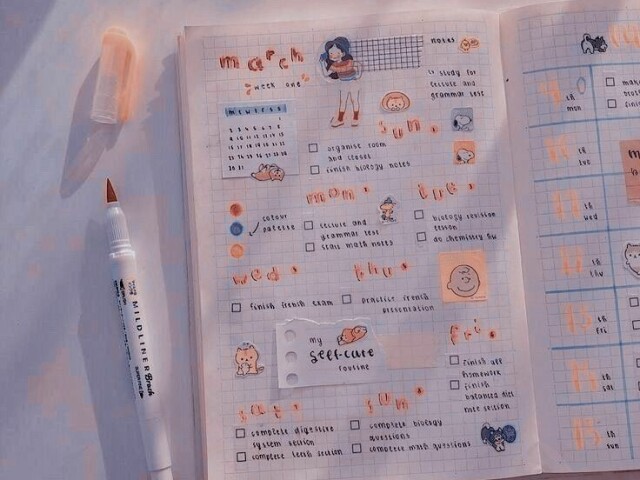 march
notes
week one
to study for
lecture and
grammar test
sun.
organise room
and clothes
finish biology notes
mon.
tue.
colour
palette
lecture and
grammar test
start math notes
biology revision
lesson
do chemistry hw
wed.
thu.
finish french exam
practise french
presentation
my
self-care
routine
fri.
finish art
homework
finish
balanced diet
note session
sat.
sun.
complete digestive
system section
complete teeth section
complete biology
questions
complete math questions
MILDLINER Brush
th
mon
th
wed
th
thu
th
fri
th
sat
th
sun